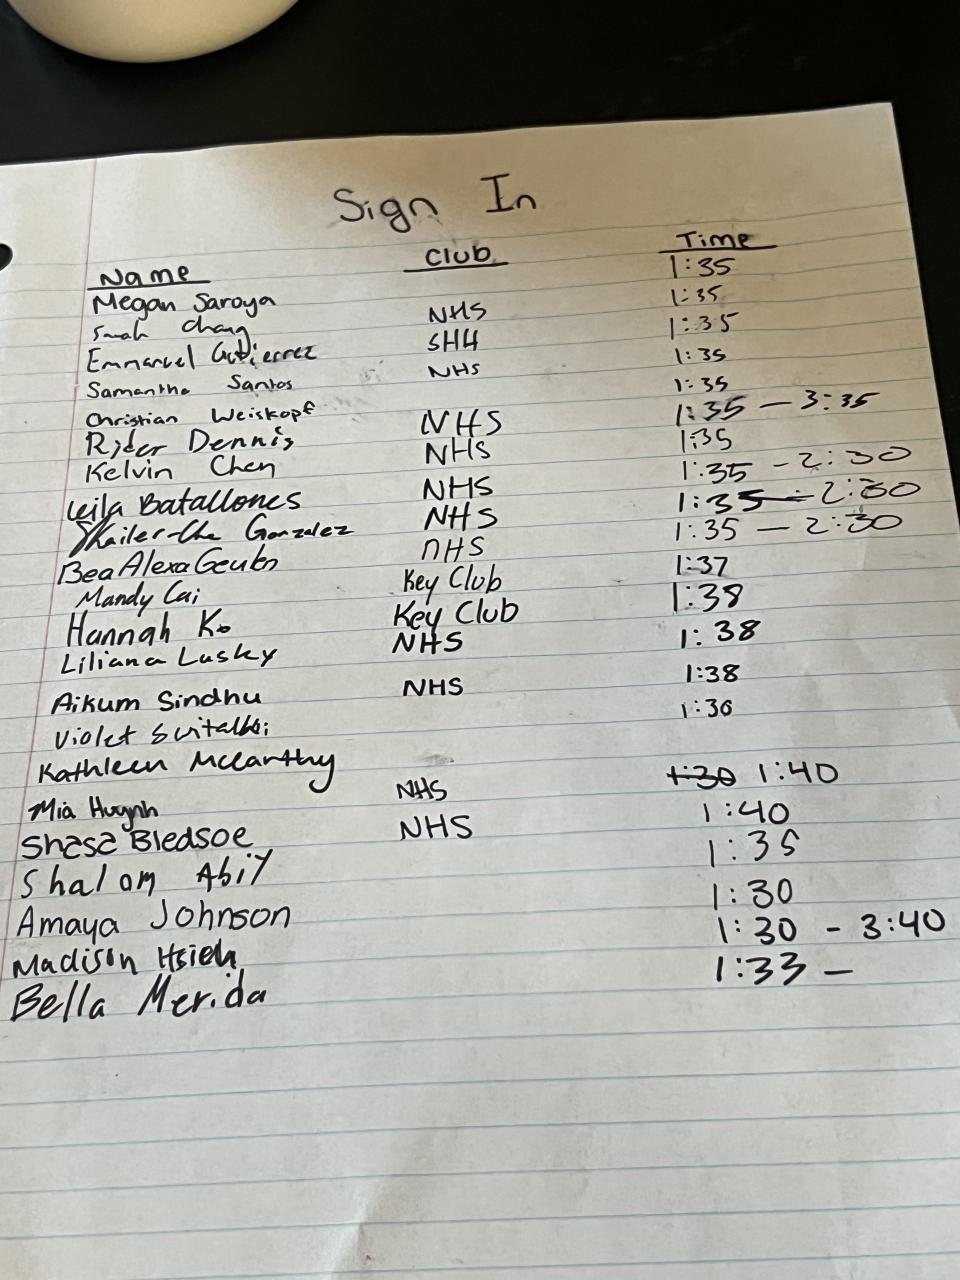 Sign In
Name Club Time
Megan Saroya 1:35
Chang NHS 1:35
Emmanuel Gutierrez SHH 1:35
Samantha Santos NHS 1:35
Christian Weiskopf 1:35
Rider Dennis NHS 1:35 — 3:35
Kelvin Chen NHS 1:35
Leila Batallones NHS 1:35 - 2:30
Gonzalez NHS 1:35 — 2:30
Bea Alexa nHS 1:35 — 2:30
Mandy Cai Key Club 1:37
Hannah Ko Key Club 1:38
Liliana Lusky NHS 1:38
Aikum Sindhu NHS 1:38
Violet 1:30
Kathleen McCarthy
Mia Huynh NHS 1:30 1:40
Shasa Bledsoe NHS 1:40
Shalom Abiy 1:35
Amaya Johnson 1:30
Madison Hsieh 1:30 - 3:40
Bella Merida 1:33 —